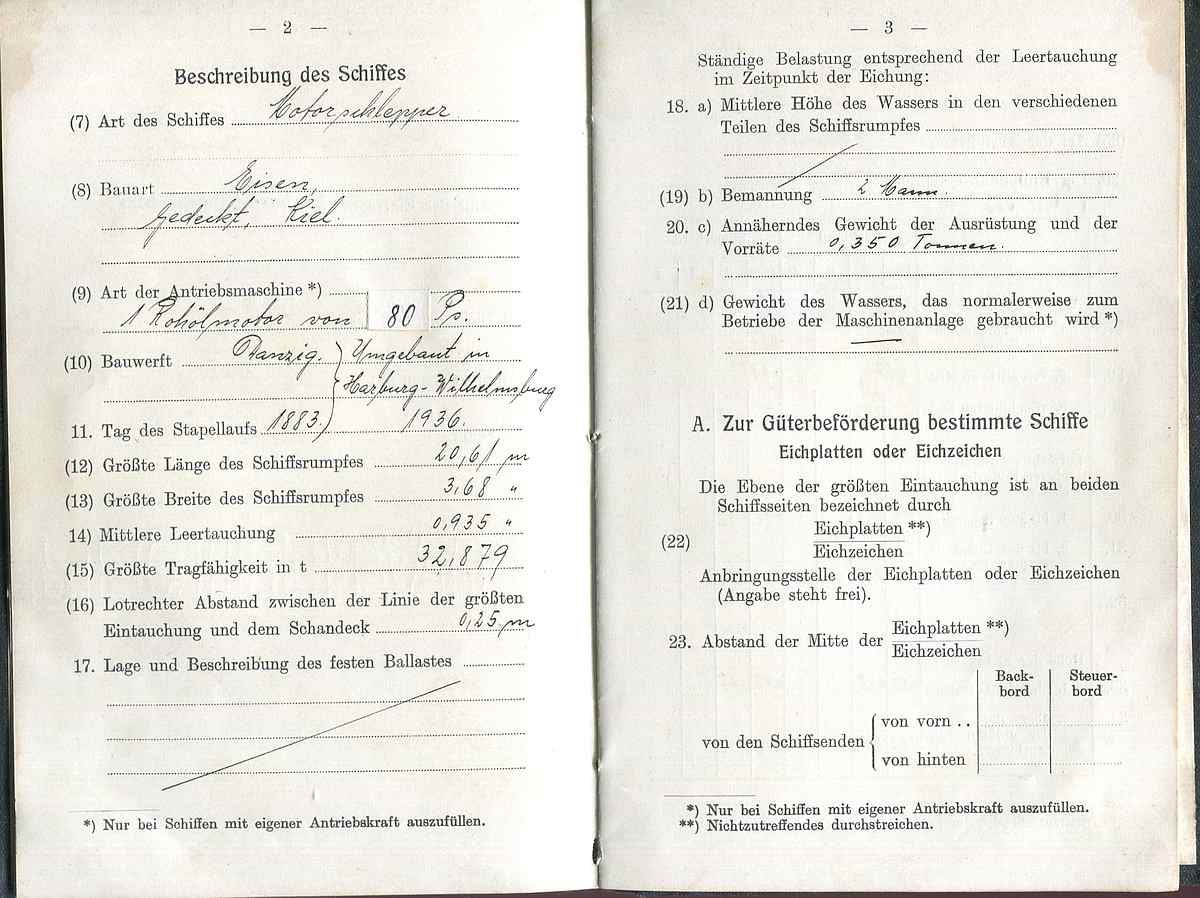 — 2 —
Beschreibung des Schiffes
(7) Art des Schiffes Motorschlepper
(8) Bauart Eisen,
gedeckt, Kiel.
(9) Art der Antriebsmaschine *)
1 Rohölmotor von 80 Ps.
(10) Bauwerft Danzig. Umgebaut in
Harburg-Wilhelmsburg
11. Tag des Stapellaufs 1883. 1936.
(12) Größte Länge des Schiffsrumpfes 20,61 m
(13) Größte Breite des Schiffsrumpfes 3,68 "
14) Mittlere Leertauchung 0,935 "
(15) Größte Tragfähigkeit in t 32,879
(16) Lotrechter Abstand zwischen der Linie der größten
Eintauchung und dem Schandeck 0,25 m
17. Lage und Beschreibung des festen Ballastes
*) Nur bei Schiffen mit eigener Antriebskraft auszufüllen.
— 3 —
Ständige Belastung entsprechend der Leertauchung
im Zeitpunkt der Eichung:
18. a) Mittlere Höhe des Wassers in den verschiedenen
Teilen des Schiffsrumpfes
(19) b) Bemannung 2 Mann.
20. c) Annäherndes Gewicht der Ausrüstung und der
Vorräte 0,350 Tonnen.
(21) d) Gewicht des Wassers, das normalerweise zum
Betriebe der Maschinenanlage gebraucht wird *)
A. Zur Güterbeförderung bestimmte Schiffe
Eichplatten oder Eichzeichen
Die Ebene der größten Eintauchung ist an beiden
Schiffsseiten bezeichnet durch
Eichplatten **)
(22)
Eichzeichen
Anbringungsstelle der Eichplatten oder Eichzeichen
(Angabe steht frei).
23. Abstand der Mitte der Eichplatten **)
Eichzeichen
Back-
bord
Steuer-
bord
von den Schiffsenden
von vorn . .
von hinten
*) Nur bei Schiffen mit eigener Antriebskraft auszufüllen.
**) Nichtzutreffendes durchstreichen.